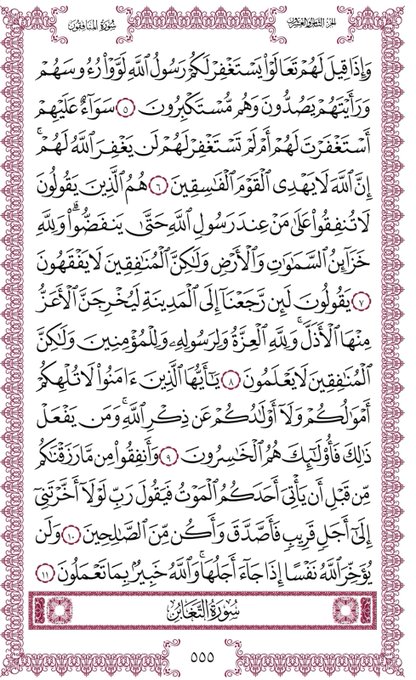 سُورَةُ المُنَافِقُون
الجُزْءُ الثَّامِنُ وَالعِشْرُونَ
وَإِذَا قِيلَ لَهُمْ تَعَالَوْا۟ يَسْتَغْفِرْ لَكُمْ رَسُولُ ٱللَّهِ لَوَّوْا۟ رُءُوسَهُمْ
وَرَأَيْتَهُمْ يَصُدُّونَ وَهُم مُّسْتَكْبِرُونَ ٥ سَوَآءٌ عَلَيْهِمْ
أَسْتَغْفَرْتَ لَهُمْ أَمْ لَمْ تَسْتَغْفِرْ لَهُمْ لَن يَغْفِرَ ٱللَّهُ لَهُمْ ۚ
إِنَّ ٱللَّهَ لَا يَهْدِى ٱلْقَوْمَ ٱلْفَـٰسِقِينَ ٦ هُمُ ٱلَّذِينَ يَقُولُونَ
لَا تُنفِقُوا۟ عَلَىٰ مَنْ عِندَ رَسُولِ ٱللَّهِ حَتَّىٰ يَنفَضُّوا۟ ۗ وَلِلَّهِ
خَزَآئِنُ ٱلسَّمَـٰوَٰتِ وَٱلْأَرْضِ وَلَـٰكِنَّ ٱلْمُنَـٰفِقِينَ لَا يَفْقَهُونَ
٧ يَقُولُونَ لَئِن رَّجَعْنَآ إِلَى ٱلْمَدِينَةِ لَيُخْرِجَنَّ ٱلْأَعَزُّ
مِنْهَا ٱلْأَذَلَّ ۚ وَلِلَّهِ ٱلْعِزَّةُ وَلِرَسُولِهِۦ وَلِلْمُؤْمِنِينَ وَلَـٰكِنَّ
ٱلْمُنَـٰفِقِينَ لَا يَعْلَمُونَ ٨ يَـٰٓأَيُّهَا ٱلَّذِينَ ءَامَنُوا۟ لَا تُلْهِكُمْ
أَمْوَٰلُكُمْ وَلَآ أَوْلَـٰدُكُمْ عَن ذِكْرِ ٱللَّهِ ۚ وَمَن يَفْعَلْ
ذَٰلِكَ فَأُو۟لَـٰٓئِكَ هُمُ ٱلْخَـٰسِرُونَ ٩ وَأَنفِقُوا۟ مِن مَّا رَزَقْنَـٰكُم
مِّن قَبْلِ أَن يَأْتِىَ أَحَدَكُمُ ٱلْمَوْتُ فَيَقُولَ رَبِّ لَوْلَآ أَخَّرْتَنِىٓ
إِلَىٰٓ أَجَلٍ قَرِيبٍ فَأَصَّدَّقَ وَأَكُن مِّنَ ٱلصَّـٰلِحِينَ ١٠ وَلَن
يُؤَخِّرَ ٱللَّهُ نَفْسًا إِذَا جَآءَ أَجَلُهَا ۚ وَٱللَّهُ خَبِيرٌۢ بِمَا تَعْمَلُونَ ١١
سُورَةُ التَّغَابُنِ
٥٥٥